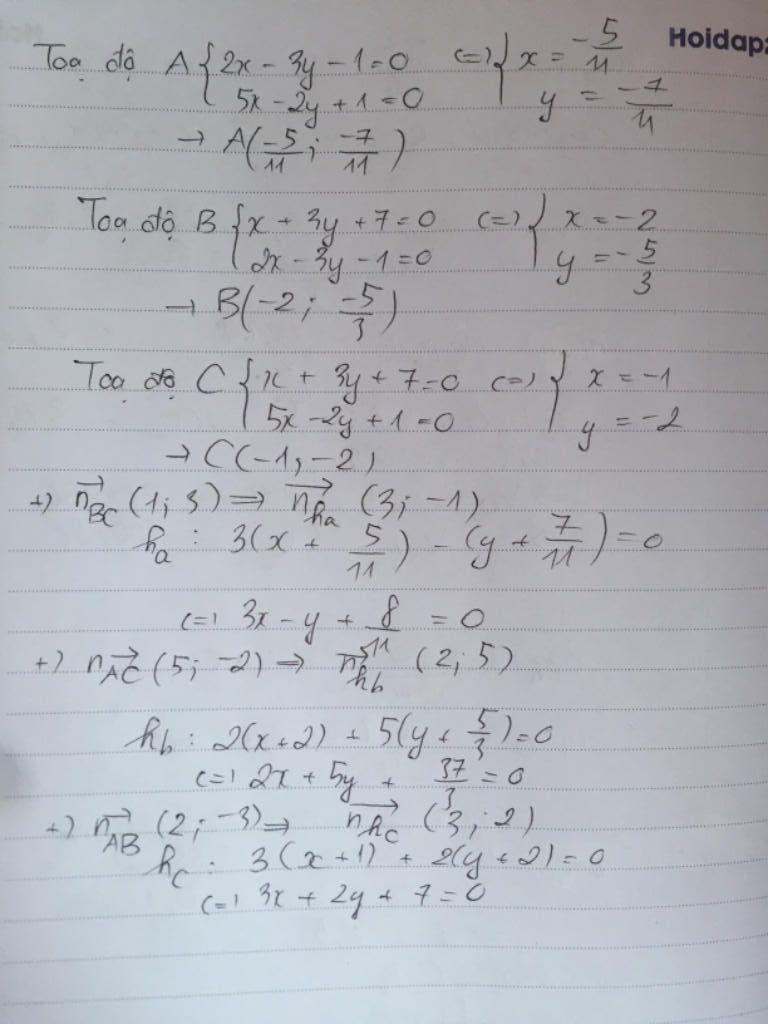 Hoidap
Toạ độ A { 2x - 3y - 1 = 0 (=) { x = -5/11
5x - 2y + 1 = 0 y = -7/11
→ A(-5/11; -7/11)
Toạ độ B { x + 3y + 7 = 0 (=) { x = -2
2x - 3y - 1 = 0 y = -5/3
→ B(-2; -5/3)
Toạ độ C { x + 3y + 7 = 0 (=) { x = -1
5x - 2y + 1 = 0 y = -2
→ C(-1; -2)
+) n_BC→ (1; 3) ⇒ n_ha→ (3; -1)
ha : 3(x + 5/11) - (y + 7/11) = 0
(=) 3x - y + 8/11 = 0
+) n_AC→ (5; -2) ⇒ n_hb→ (2; 5)
hb : 2(x+2) + 5(y + 5/3) = 0
(=) 2x + 5y + 37/3 = 0
+) n_AB→ (2; -3) ⇒ n_hc→ (3; 2)
hc : 3(x+1) + 2(y+2) = 0
(=) 3x + 2y + 7 = 0